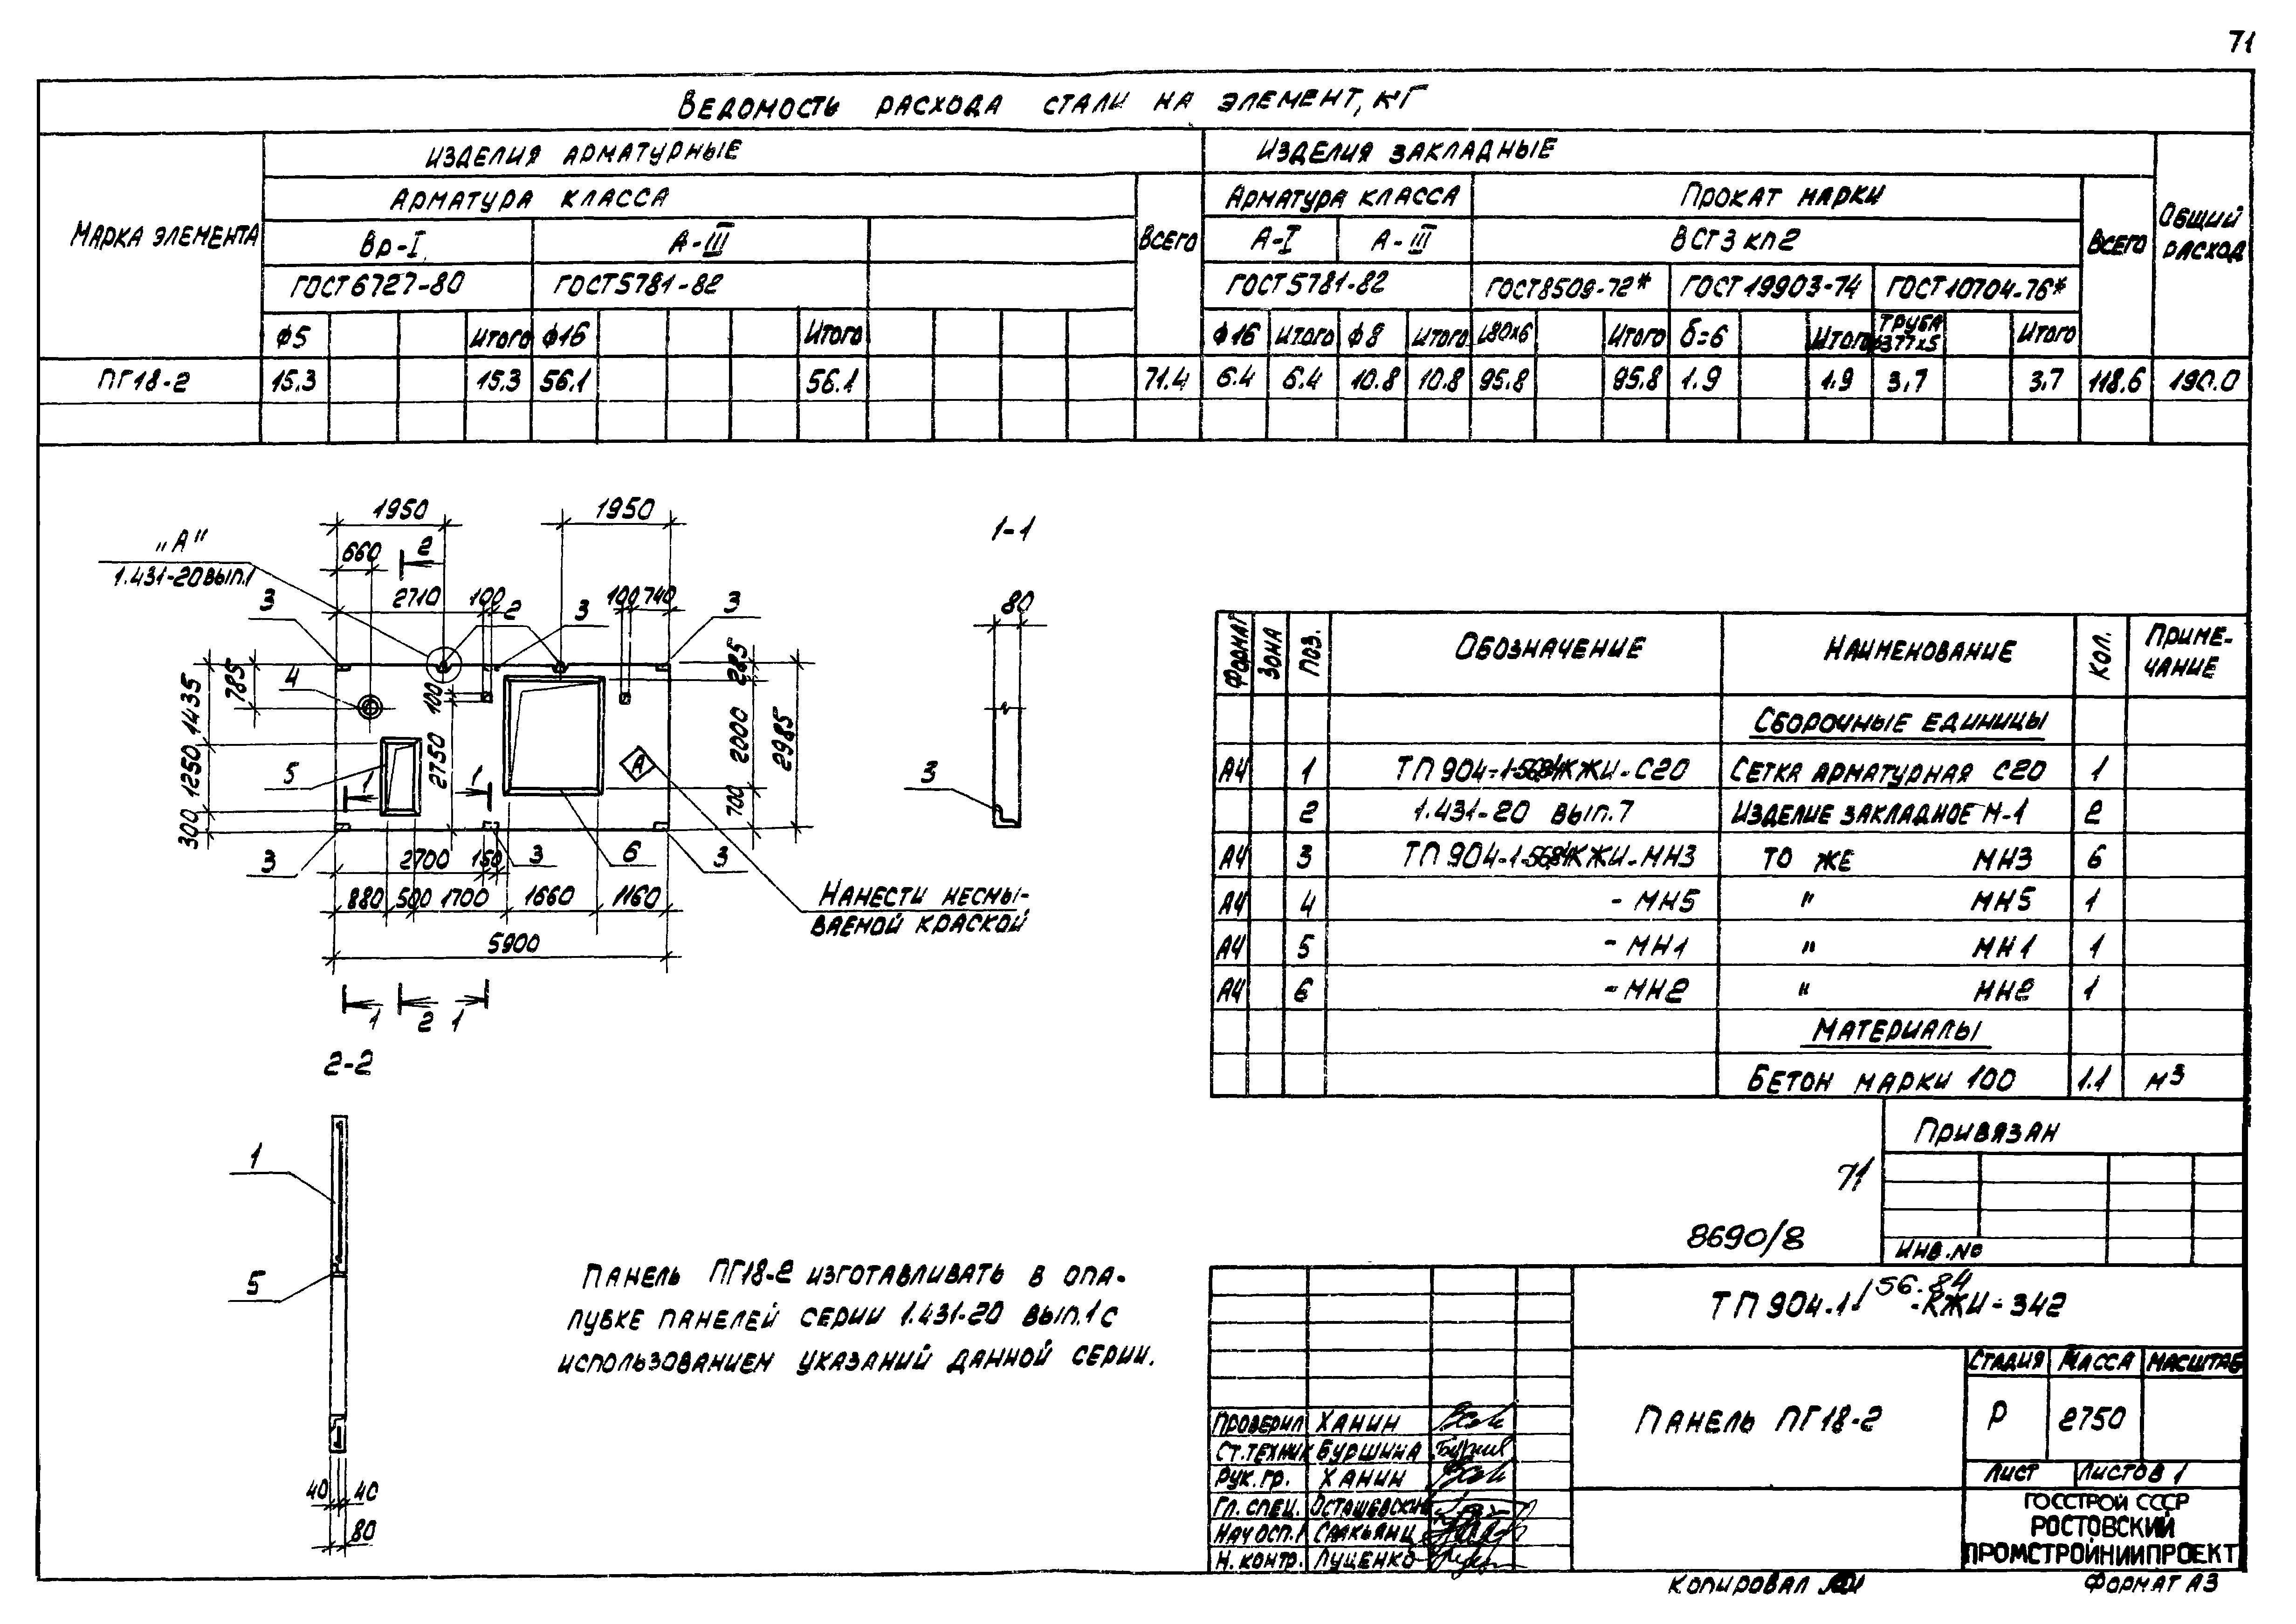 71
Ведомость расхода стали на элемент, кг
Марка элемента
Изделия арматурные
Изделия закладные
Общий расход
Арматура класса
Всего
Арматура класса
Прокат марки
Всего
Вр-I
А-III
А-I
А-III
ВСт3кп2
ГОСТ 6727-80
ГОСТ 5781-82
ГОСТ 5781-82
ГОСТ 8509-72*
ГОСТ 19903-74
ГОСТ 10704-76*
Ф5 Итого Ф16 Итого Ф16 Итого Ф8 Итого L80х6 Итого δ=6 Итого Труба 377х5 Итого
ПГ18-2 15.3 15.3 56.1 56.1 71.4 6.4 6.4 10.8 10.8 95.8 95.8 1.9 1.9 3,7 3,7 118.6 190.0
1950 1950
„А"
1.431-20 вып.1
660 2
2710 100 2 3 100 740 3
3
4
5
785
1435
1250
300
100
2750
1 1
А
285
2000
700
2985
3 2700 150 3 6 3
880 500 1700 1660 1160
5900
1 2 1
Нанести несмы-
ваемой краской
1-1
80
3
2-2
1
5
40 40
80
Формат Зона Поз. Обозначение Наименование Кол. Приме-
чание
Сборочные единицы
А4 1 ТП 904-1-56.84КЖИ-С20 Сетка арматурная С20 1
2 1.431-20 вып.7 Изделие закладное М-1 2
А4 3 ТП 904-1-56.84КЖИ-МН3 То же МН3 6
А4 4 -МН5 " МН5 1
А4 5 -МН1 " МН1 1
А4 6 -МН2 " МН2 1
Материалы
Бетон марки 100 1.1 м³
Панель ПГ18-2 изготавливать в опа-
лубке панелей серии 1.431-20 вып.1 с
использованием указаний данной серии.
Привязан
71
8690/8
Инв.№
ТП 904.1-56.84-КЖИ-342
Панель ПГ18-2
Стадия Масса Масштаб
Р 2750
Лист Листов 1
Госстрой СССР
Ростовский
Промстройниипроект
Проверил Ханин
Ст.техник Буршина
Рук.гр. Ханин
Гл.спец. Осташевский
Нач осп.1 Саакьянц
Н.контр. Луценко
Копировал
Формат А3